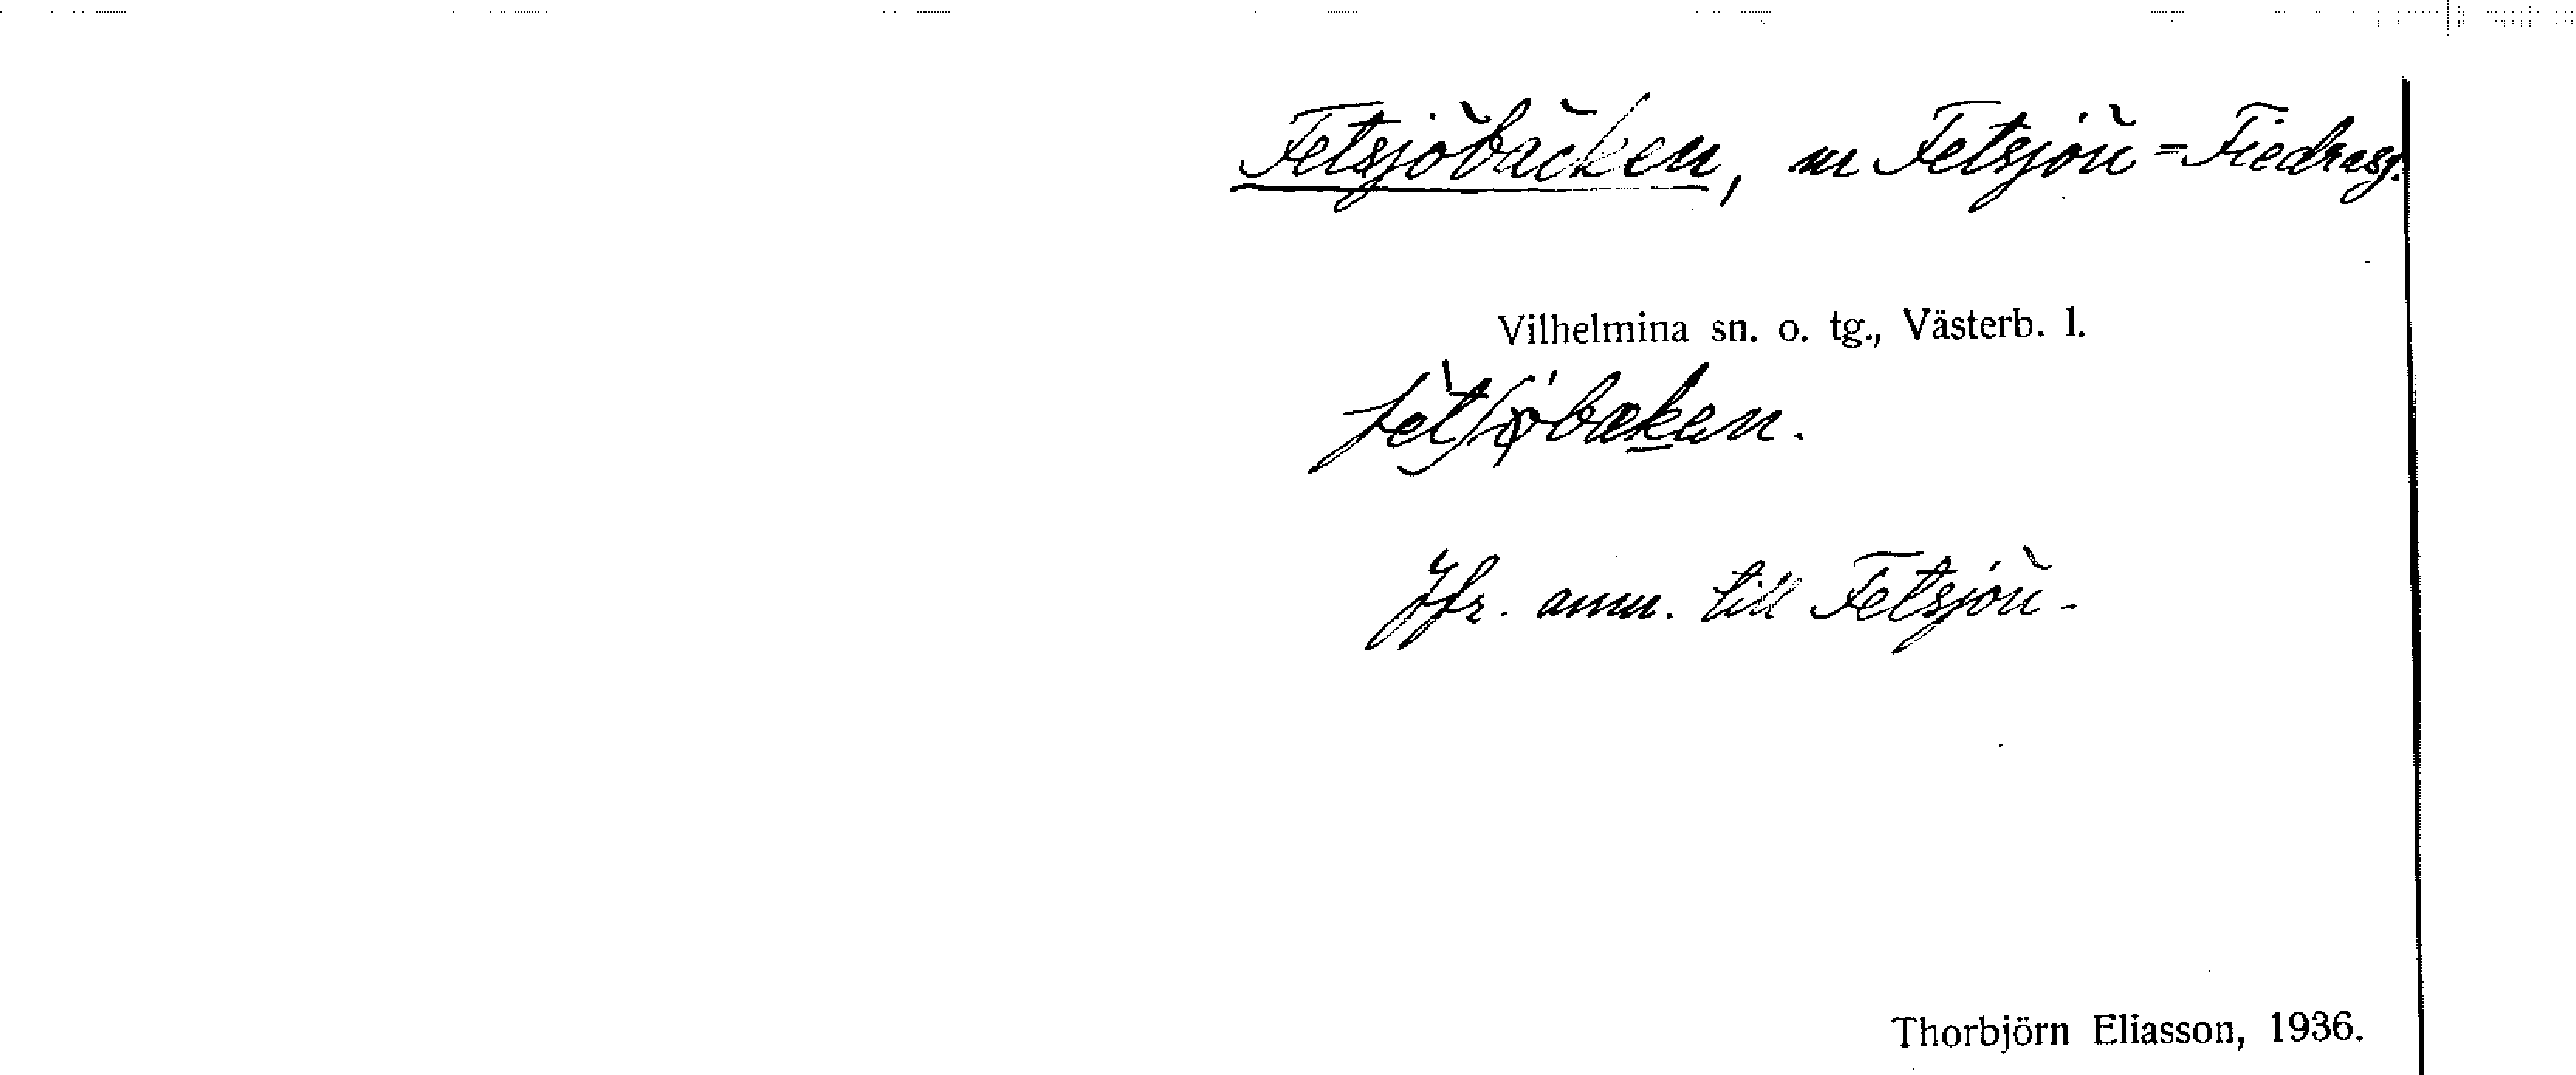 Fetsjöbäcken, m Fetsjön = Fiedrasj.
Vilhelmina sn. o. tg., Västerb. l.
Jfr. anm. till Fetsjön.
Thorbjörn Eliasson, 1936.